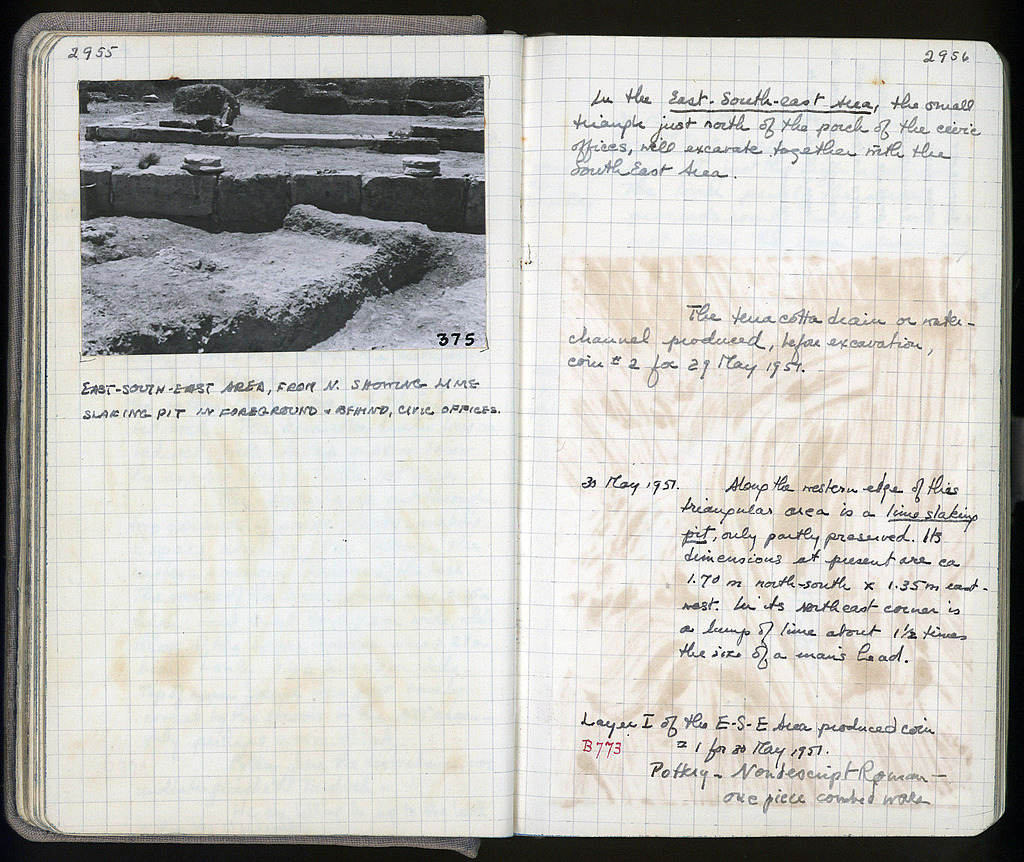 2955
375
EAST-SOUTH-EAST AREA, FROM N. SHOWING LIME
SLAKING PIT IN FOREGROUND & BEHIND, CIVIC OFFICES.
2956
In the East-South-east Area, the small
triangle just north of the porch of the civic
offices, will excavate together with the
South East Area.
The terracotta drain or water-
channel produced, before excavation,
coin # 2 for 29 May 1951.
30 May 1951. Along the western edge of this
triangular area is a lime slaking
pit, only partly preserved. Its
dimensions at present are ca
1.70 m north-south x 1.35 m east-
west. In its northeast corner is
a lump of lime about 1½ times
the size of a man's head.
Layer I of the E-S-E Area produced coin
B773 # 1 for 30 May 1951.
Pottery - Nondescript Roman -
one piece combed ware